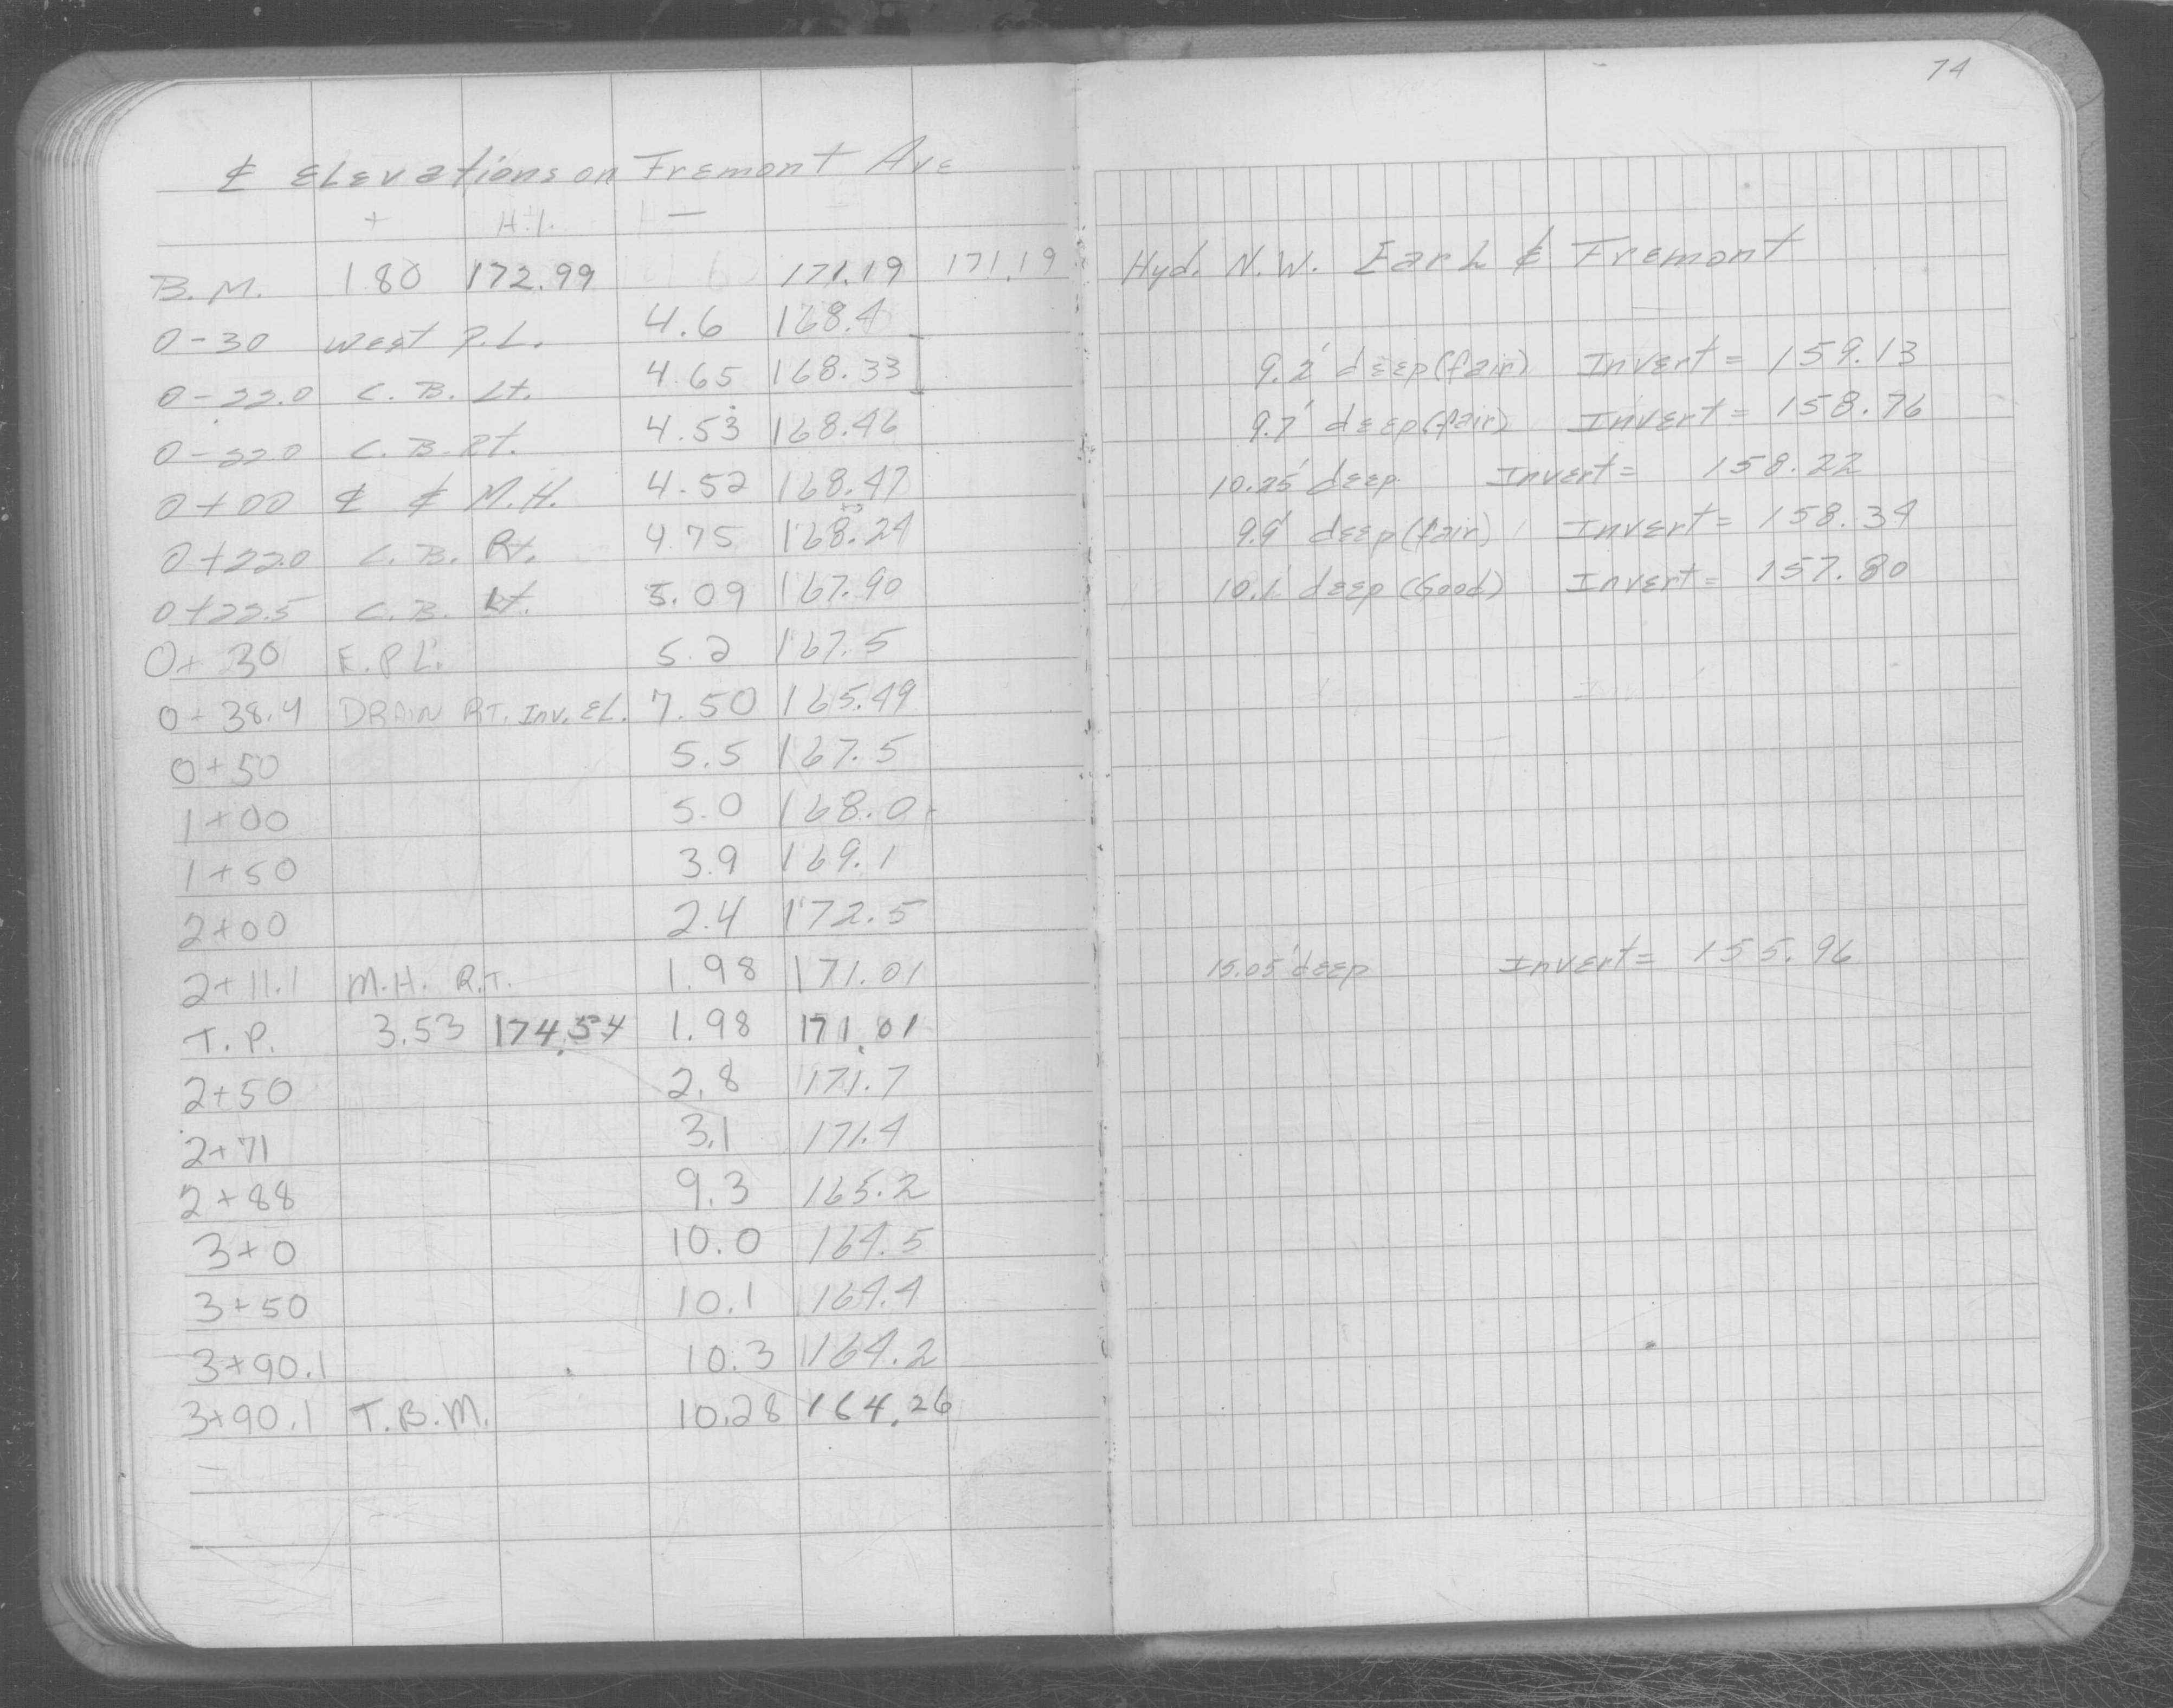 74
℄ Elevations on Fremont Ave
+ H.I. −
B.M. 1.80 172.99 171.19 171.19 Hyd. N.W. Earl & Fremont
0-30 West P.L. 4.6 168.4
0-22.0 C.B. Lt. 4.65 168.33 9.2' deep (fair) Invert = 159.13
0-22.0 C.B. Rt. 4.53 168.46 9.7' deep (fair) Invert = 158.76
0+00 ℄ & M.H. 4.52 168.47 10.25' deep Invert = 158.22
0+22.0 C.B. Rt. 4.75 168.24 9.9' deep (fair) Invert = 158.34
0+22.5 C.B. Lt. 5.09 167.90 10.1' deep (Good) Invert = 157.80
0+30 E.P.L. 5.2 167.5
0+38.4 DRAIN RT. Inv. EL. 7.50 165.49
0+50 5.5 167.5
1+00 5.0 168.0
1+50 3.9 169.1
2+00 2.4 172.5
2+11.1 M.H. RT. 1.98 171.01 15.05' deep Invert = 155.96
T.P. 3.53 174.54 1.98 171.01
2+50 2.8 171.7
2+71 3.1 171.4
2+88 9.3 165.2
3+0 10.0 164.5
3+50 10.1 164.4
3+90.1 10.3 164.2
3+90.1 T.B.M. 10.28 164.26